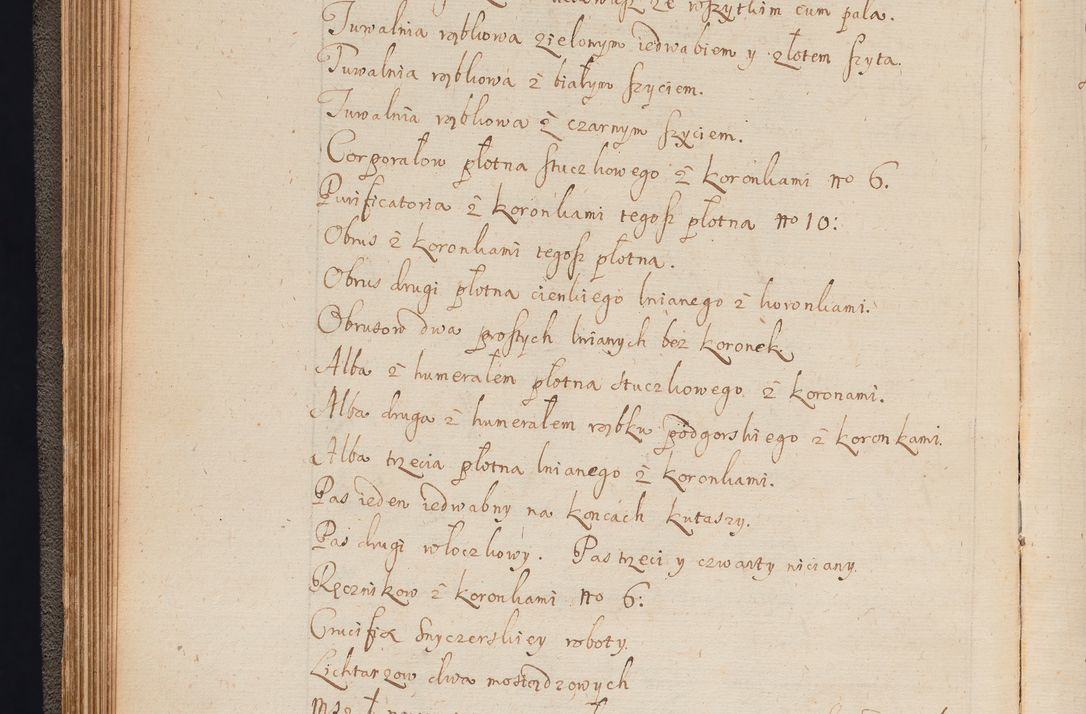 ze wszytkim cum pala.
Tuwalnia rąbkowa zielonym iedwabiem y złotem szyta.
Tuwalnia rąbkowa z białym szyciem.
Tuwalnia rąbkowa z czarnym szyciem.
Corporałow płotna sztuczkowego z koronkami no 6.
Purificatoria z koronkami tegosz płotna no 10:
Obrus z koronkami tegosz płotna.
Obrus drugi płotna cienkiego lnianego z koronkami.
Obrusow dwa prostych lnianych bez koronek
Alba z humerałem płotna stuczkowego z koronami.
Alba druga z humerałem rąbku podgorskiego z koronkami.
Alba trzecia płotna lnianego z koronkami.
Pas ieden iedwabny na koncach kutaszy.
Pas drugi włoczkowy. Pas trzeci y czwarty niciany.
Ręcznikow z koronkami no 6:
Crucifix Snyczerskiey roboty.
Lichtarzow dwa mosiądzowych